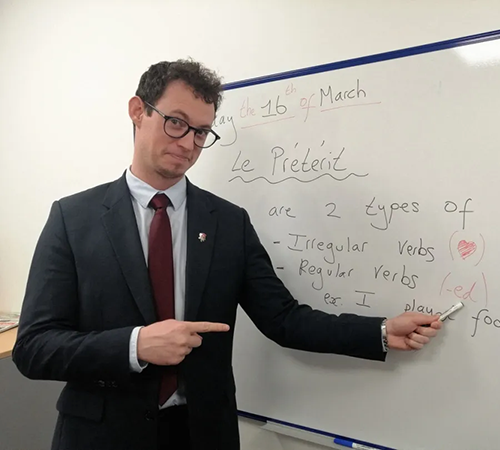 the 16th of March
Le Prétérit
are 2 types of
- Irregular verbs (♥)
- Regular verbs (-ed)
ex I